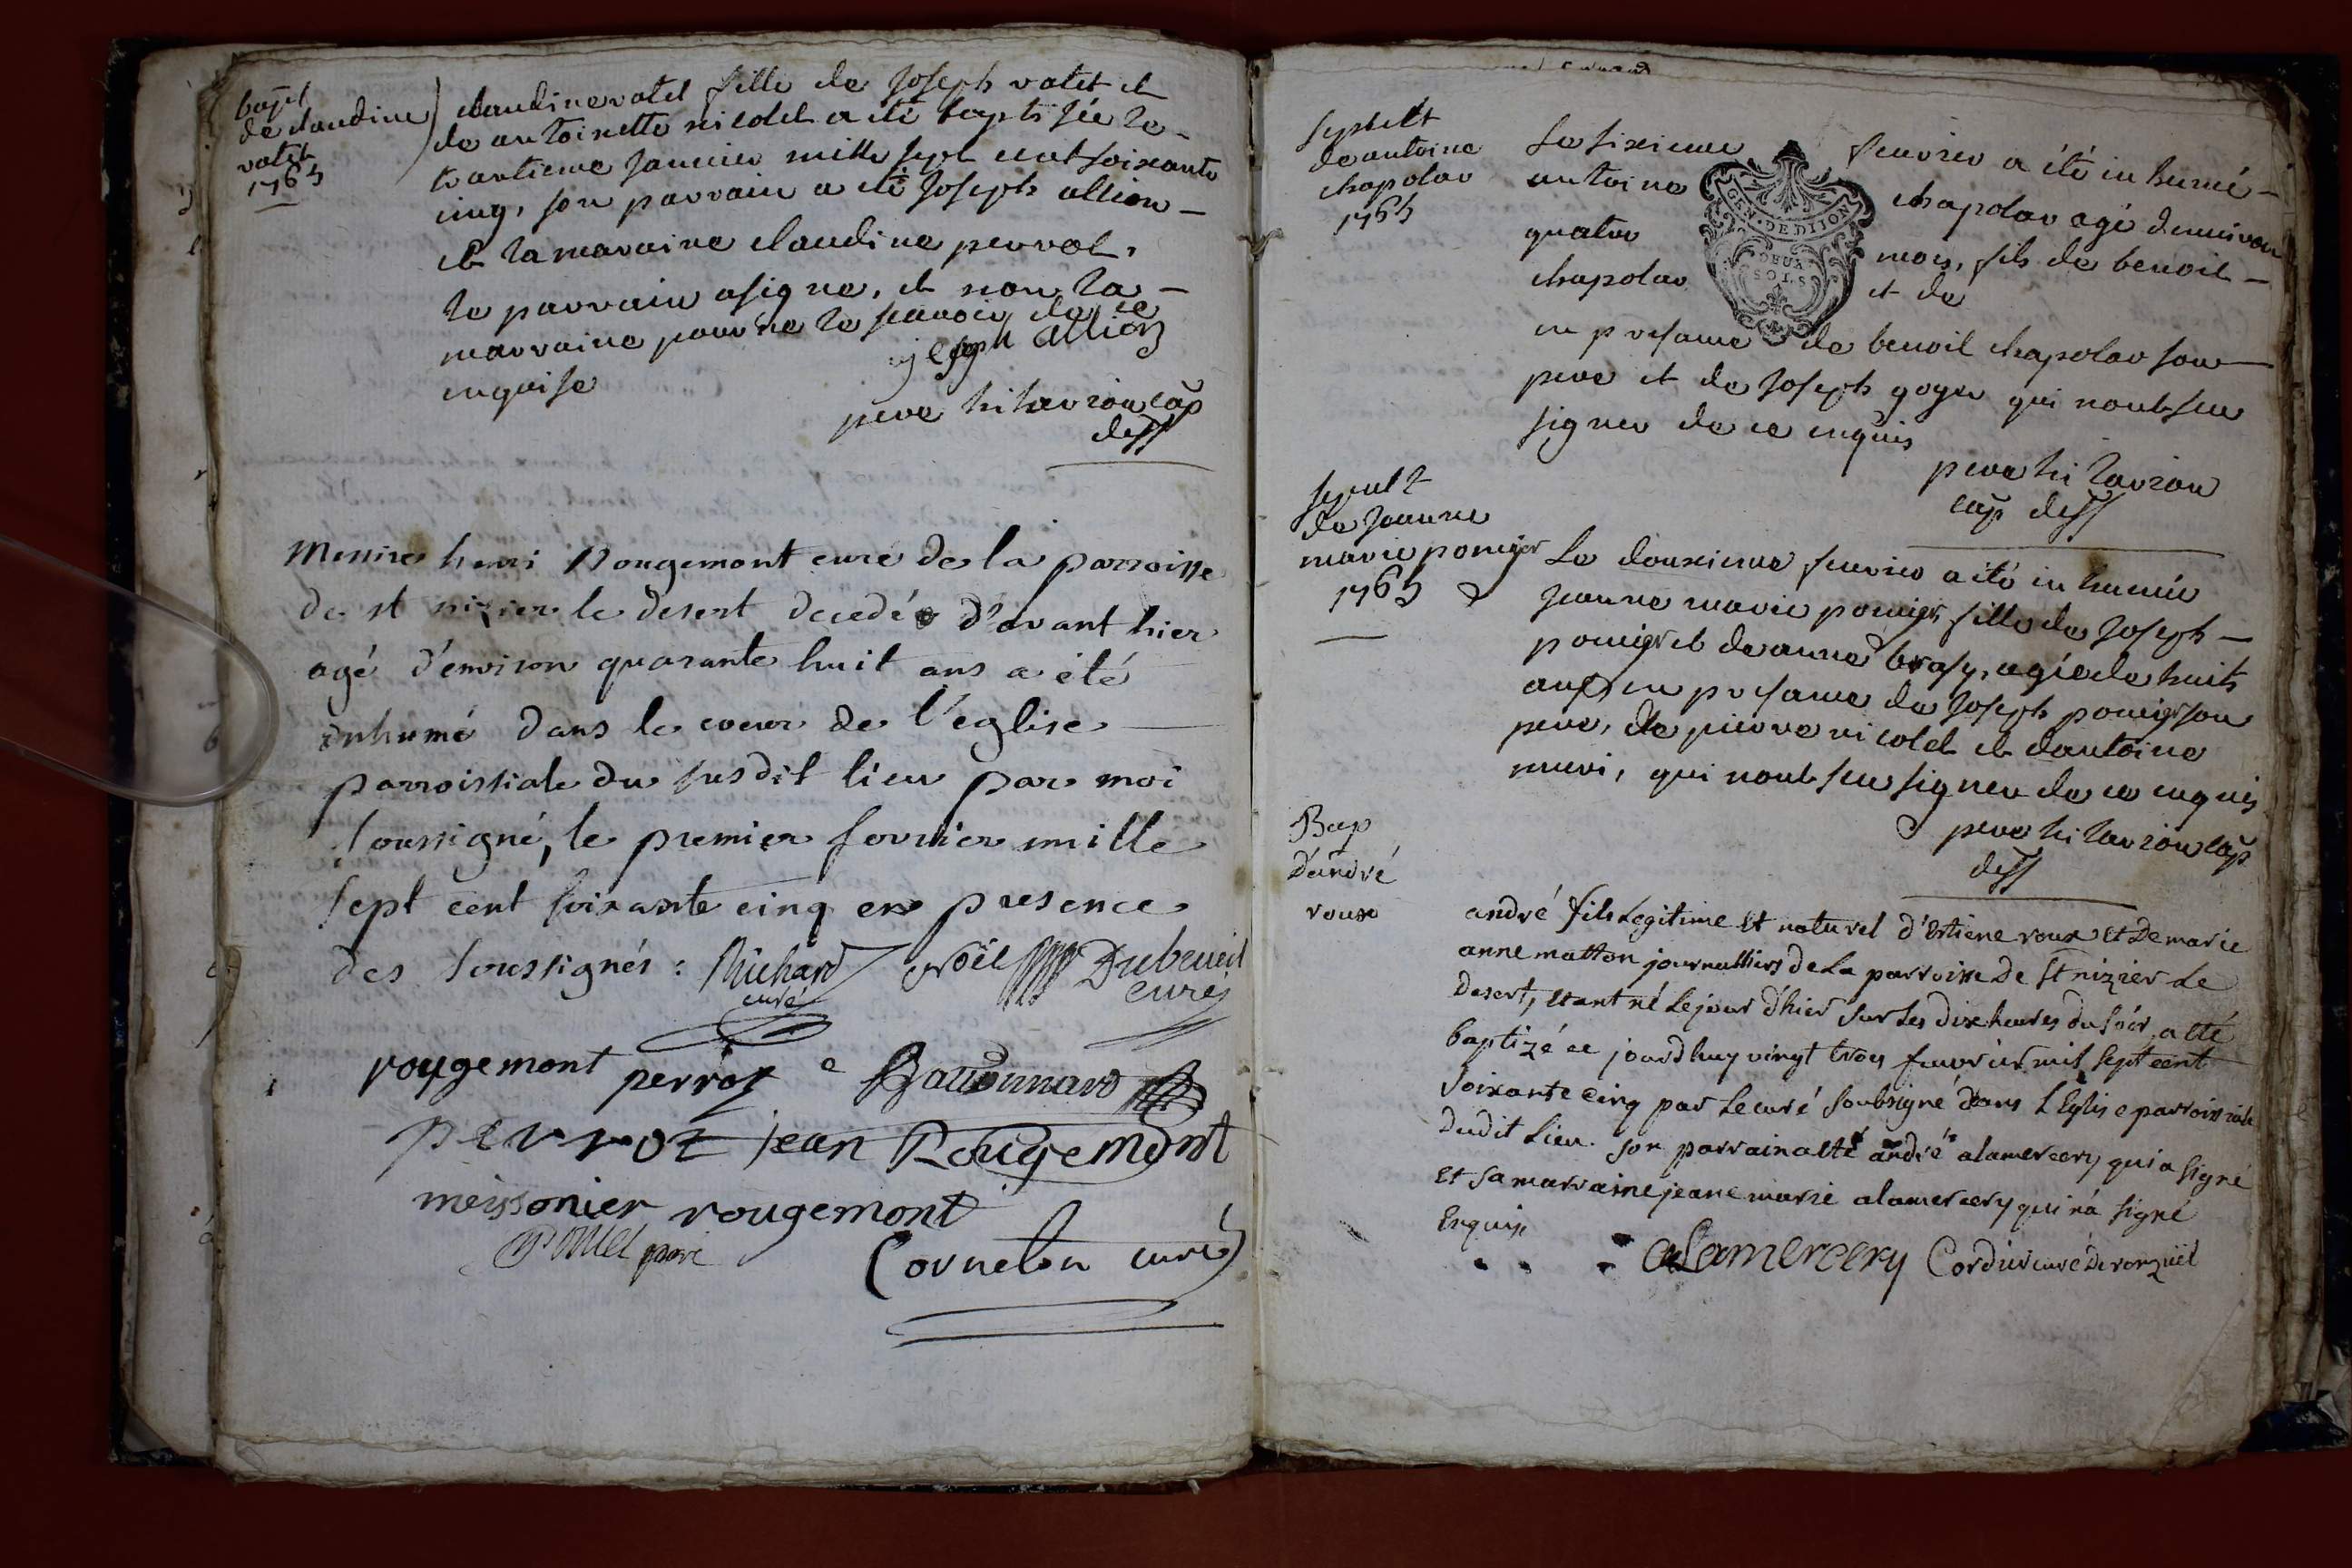 bapt
de claudine
valet
1765
claudine vatel fille de Joseph vatet et
de antoinette nicolet a été baptisée le
trantieme janvier mille sept cent soixante
cinq, son parrain a été Joseph allion
et la maraine claudine perrot,
le parrain a signe, et non la
marraine pour ne le scavoir de ce
enquise
joseph allion
pere hilarion cap
dess
Messire henri Rougemont curé de la parroisse
de st nizier le desert decedé d'avant hier
agé d'environ quarante huit ans a été
inhumé dans le coeur de l'eglise
parroissiale du susdit lieu par moi
soussigné, le premier fevrier mille
sept cent soixante cinq en presence
des soussignés : Richard noël Dubreuil
curé curé
rougemont perroz Baudonnard
perroz jean Rougemont
meissonier rougemont
Cornelon curé
sepult
de antoine
chapolar
1765
Le sixieme feuvrier a été inhumé
antoine chapolar agé denviron
quatre mois, fils de benoit
chapolar et de
GEN. DE DIJON
DEUX
SOLS
en presance de benoit chapolar son
pere et de Joseph goyer qui nont sceu
signer de ce enquis
pere hilarion
cap dess
sepult
de Jeanne
marie pomier
1765
Le douxieme feuvrier a été inhumée
jeanne marie pomier fille de Joseph
pomier et de anne brasy, agée de huits
ans, en presance de Joseph pomier son
pere, de pierre nicolet et dantoine
muri, qui nont sceu signer de ce enquis
pere hilarion cap
dess
Bap
d'andré
roux
andré fils Legitime et naturel d'Estiene roux et De marie
anne matton journalliers de La parroisse De St nizier Le
Desert, etant né Le jour d'hier sur Les dix heures du soir, a eté
baptizé ce jourdhuy vingt trois feuvrier mil sept cent
soixante cinq par Le curé soubsigné dans L'Eglise parroissiale
dudit Lieu. son parrain a eté andré alamercery qui a signé
Et sa marraine jeane marie alamercery qui n'a signé
Enquise
alamercery Cordier curé De romzuël